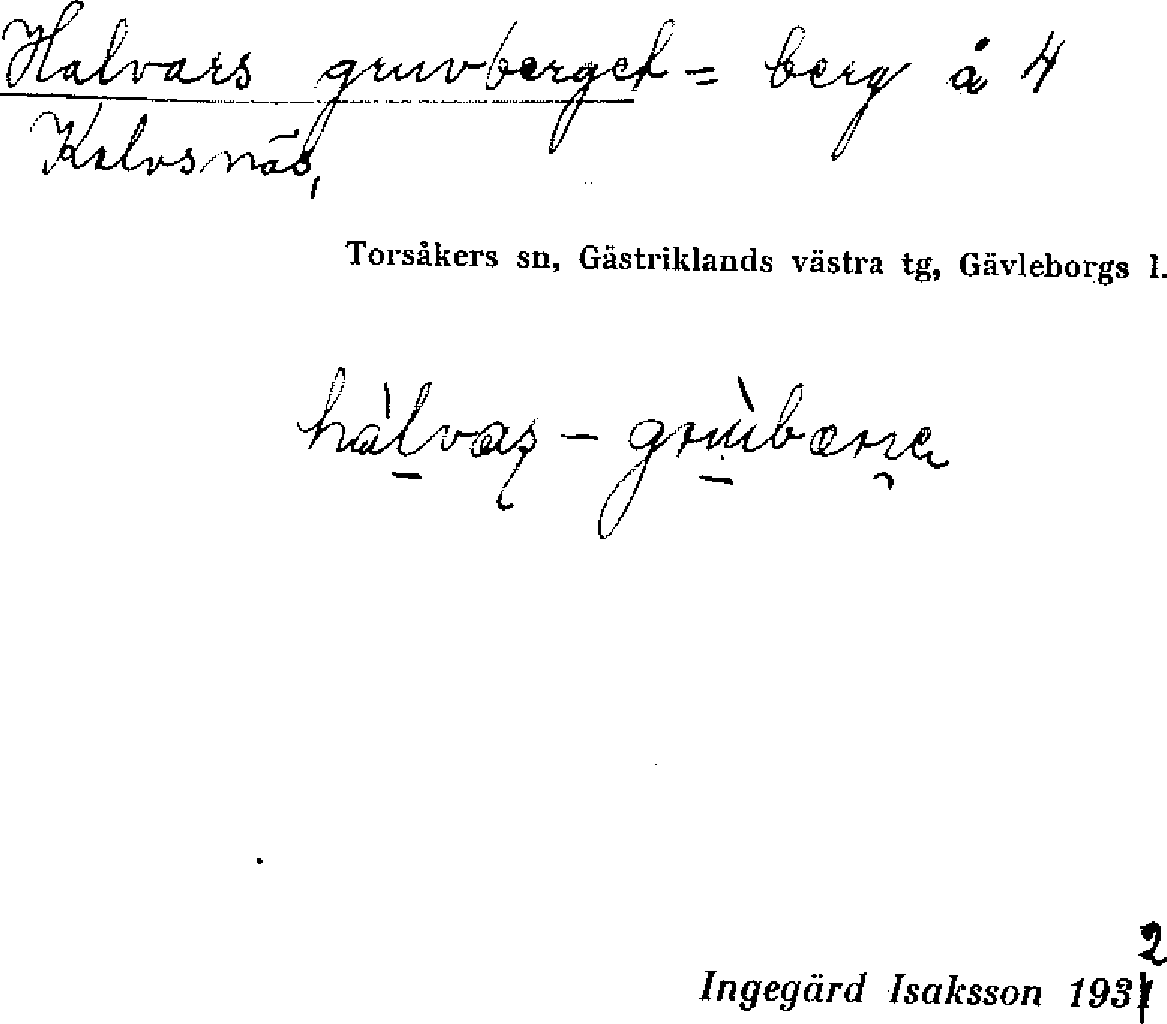 Halvars gruvberget = berg å 4
Kalvsnäs,
Torsåkers sn, Gästriklands västra tg, Gävleborgs l.
hàlvaş - grùbærjə
2
Ingegärd Isaksson 1931